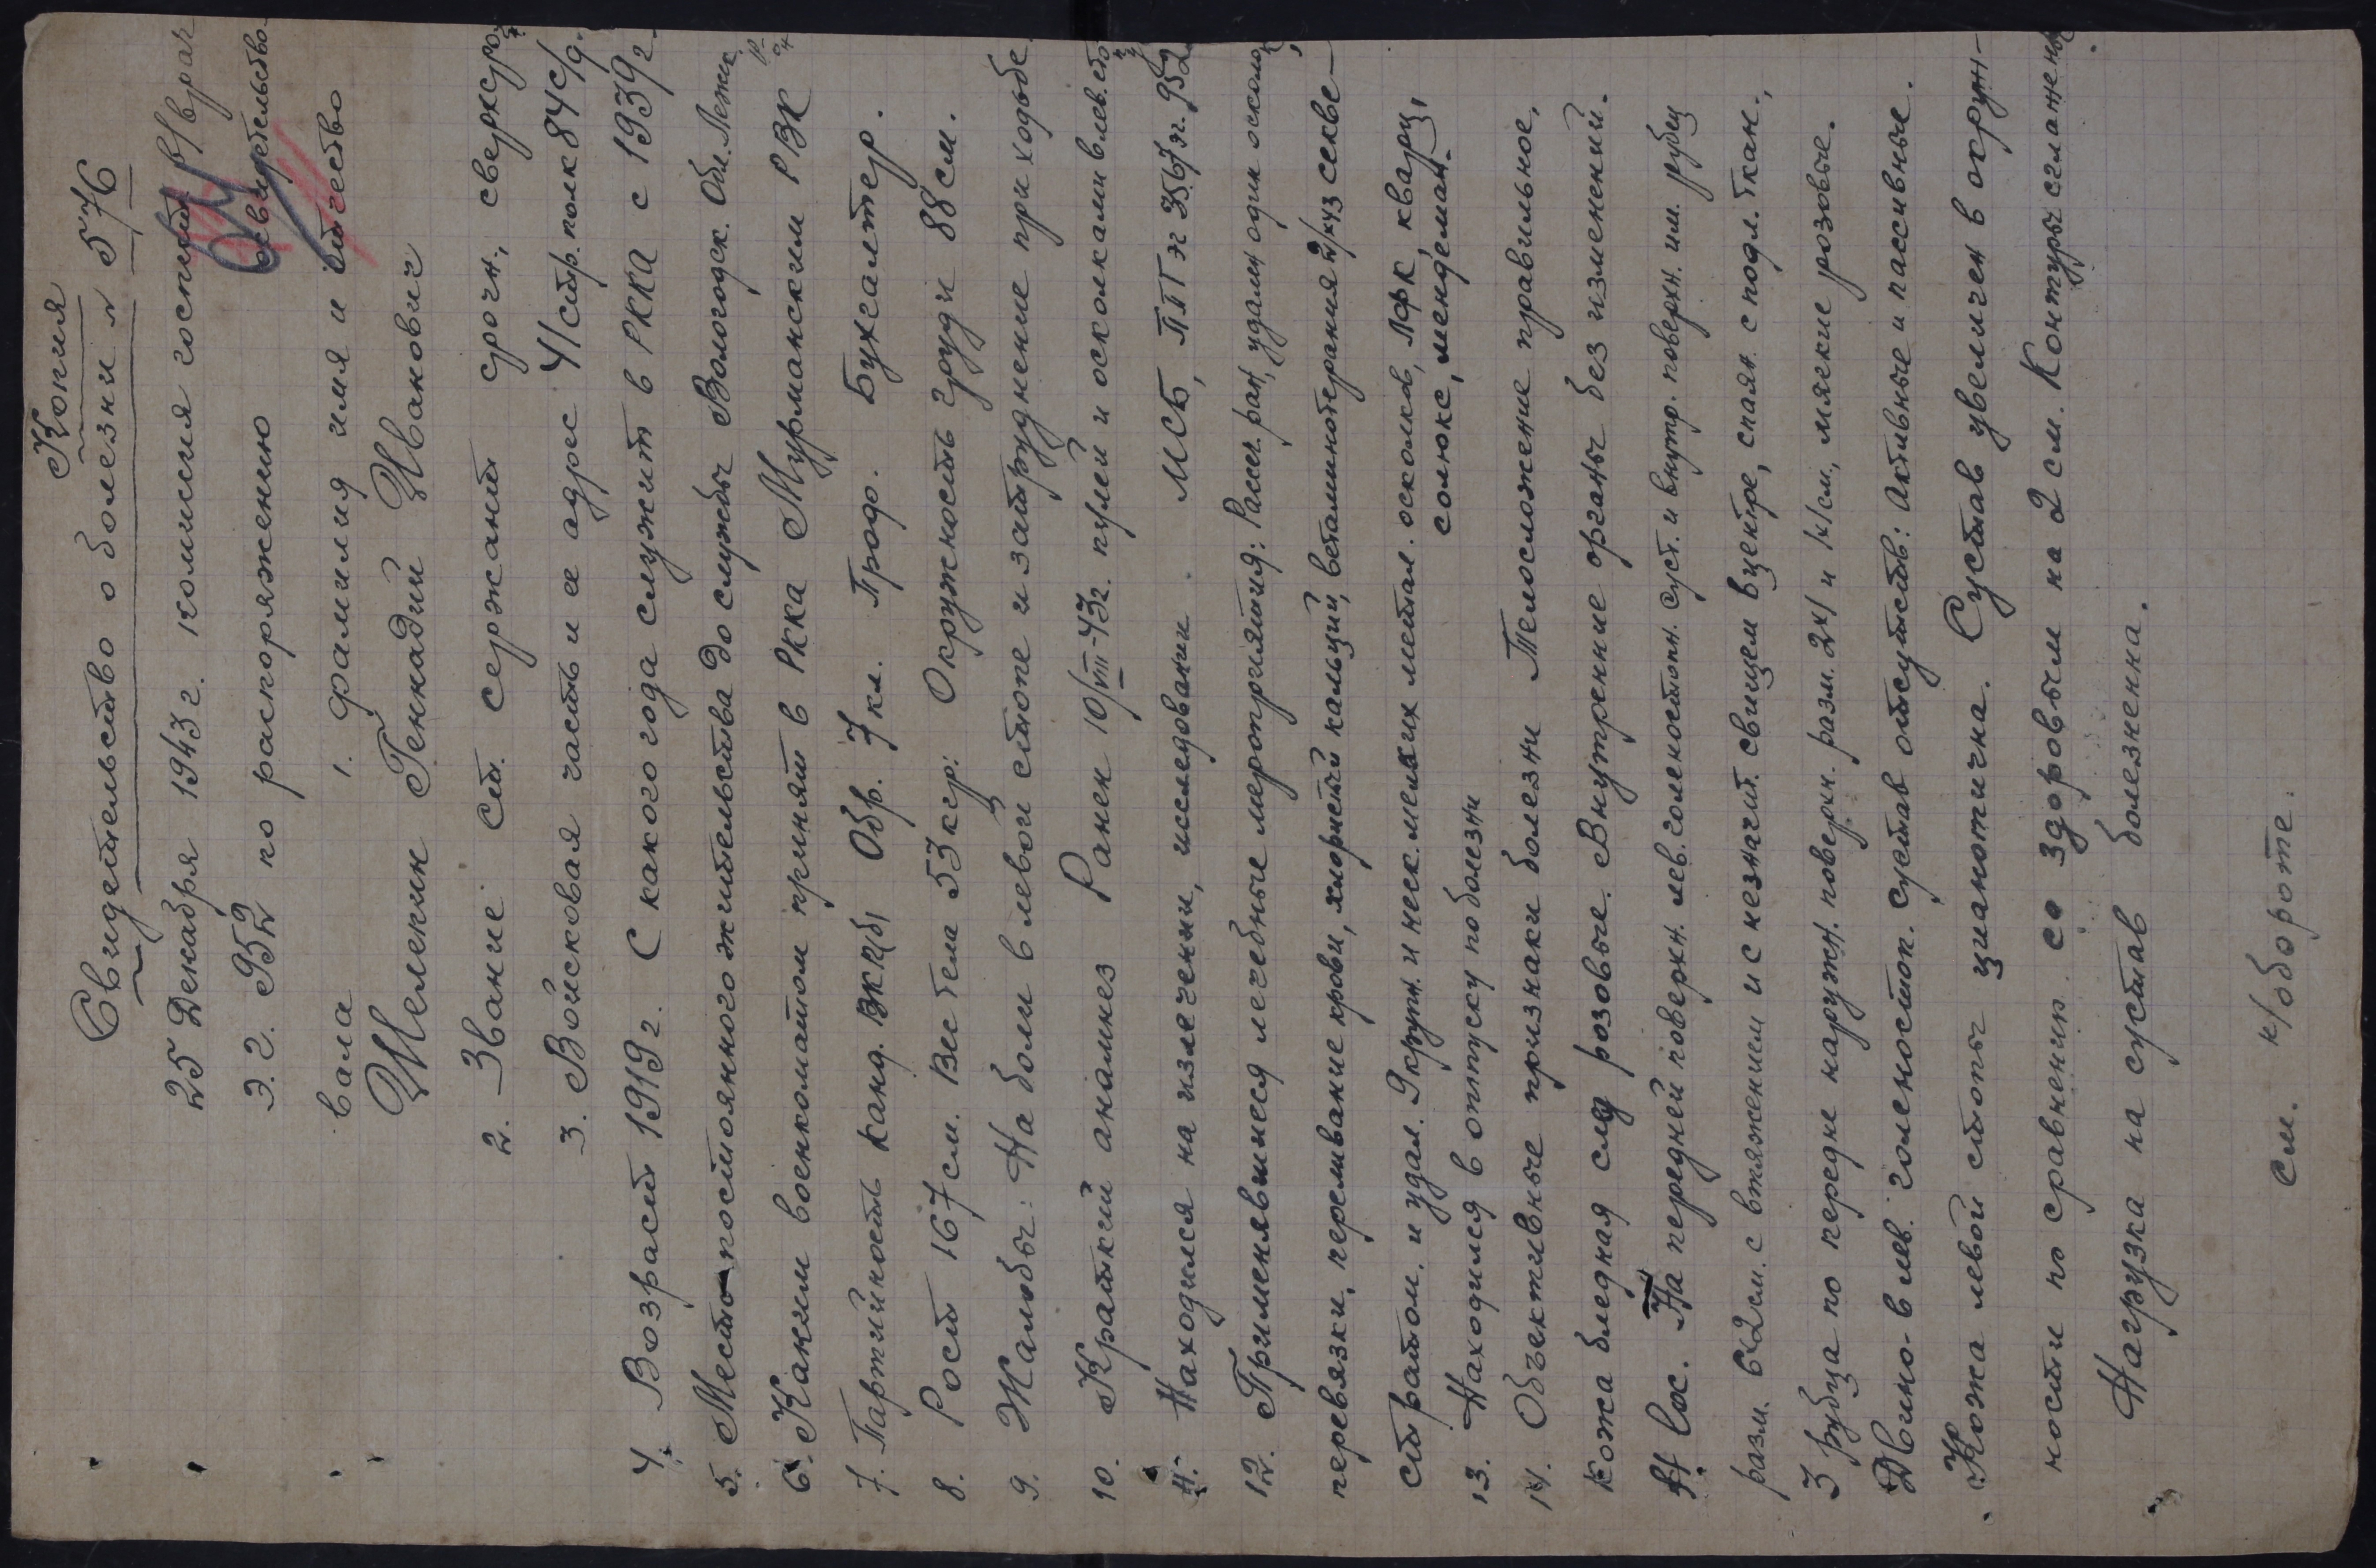 Копия
Свидетельство о болезни № 576
25 Декабря 1943 г. комиссия госпит. в/врач
Э.Г. 952 по распоряжению освидетельство-
вала 1. фамилия имя и отчество
Шемекин Генкадий Иванович
2. Звание: Ст. сержант срочн, сверхсро
3. Войсковая часть и ее адрес 41 стр. полк 84 с/д.
4. Возраст 1919 г. С какого года служит в РККА с 1939 г.
5. Место постоянного жительства до службы Вологодск. Обл.
6. Каким военкоматом принят в РККА Мурманским РВК
7. Партийность Канд. ВКП(б) Обр. 7 кл. Проф. Бухгалтер.
8. Рост 167 см. Вес тела 53 кгр: Окружность груди 88 см.
9. Жалобы: На боли в левой стопе и затруднение при ходьбе.
10. Краткий анамнез Ранен 10/VIII-43 г. пулей и осколками в лев. сто
11. Находился на излечении, исследовании МСБ, ППГ эг 952
12. Применявшиеся лечебные мероприятия: Рассеч. ран, удален один осколо
перевязки, переливание крови, хлористый кальций, ветаминотерапия секве-
стратом. и удал. 9 крупн. и неск. мелких метал. осколков, ЛФК, кварц,
солюкс, менделман.
13. Находился в отпуску по болезни
14. Объективные признаки болезни Телосложение правильное,
кожа бледная слиз розовые. Внутренние органы без изменений.
St. loc. На передней поверхн. лев. голеностопн. суст. и внутр. поверхн. им. рубец
разм. 6х2 см. с втяжением и с незначит. свищем в центре, спаян. с подл. ткан.,
3 рубца по передне наружн. поверхн. разм. 2х1 и 1х1 см., мягкие розовые.
Движ. в лев. голеностоп. сустав отсутств: активные и пассивные.
Кожа левой стопы цианотична. Сустав увеличен в окруж-
ности по сравнению со здоровым на 2 см. Контуры сглажены
Нагрузка на сустав болезненна.
см. н/обороте.